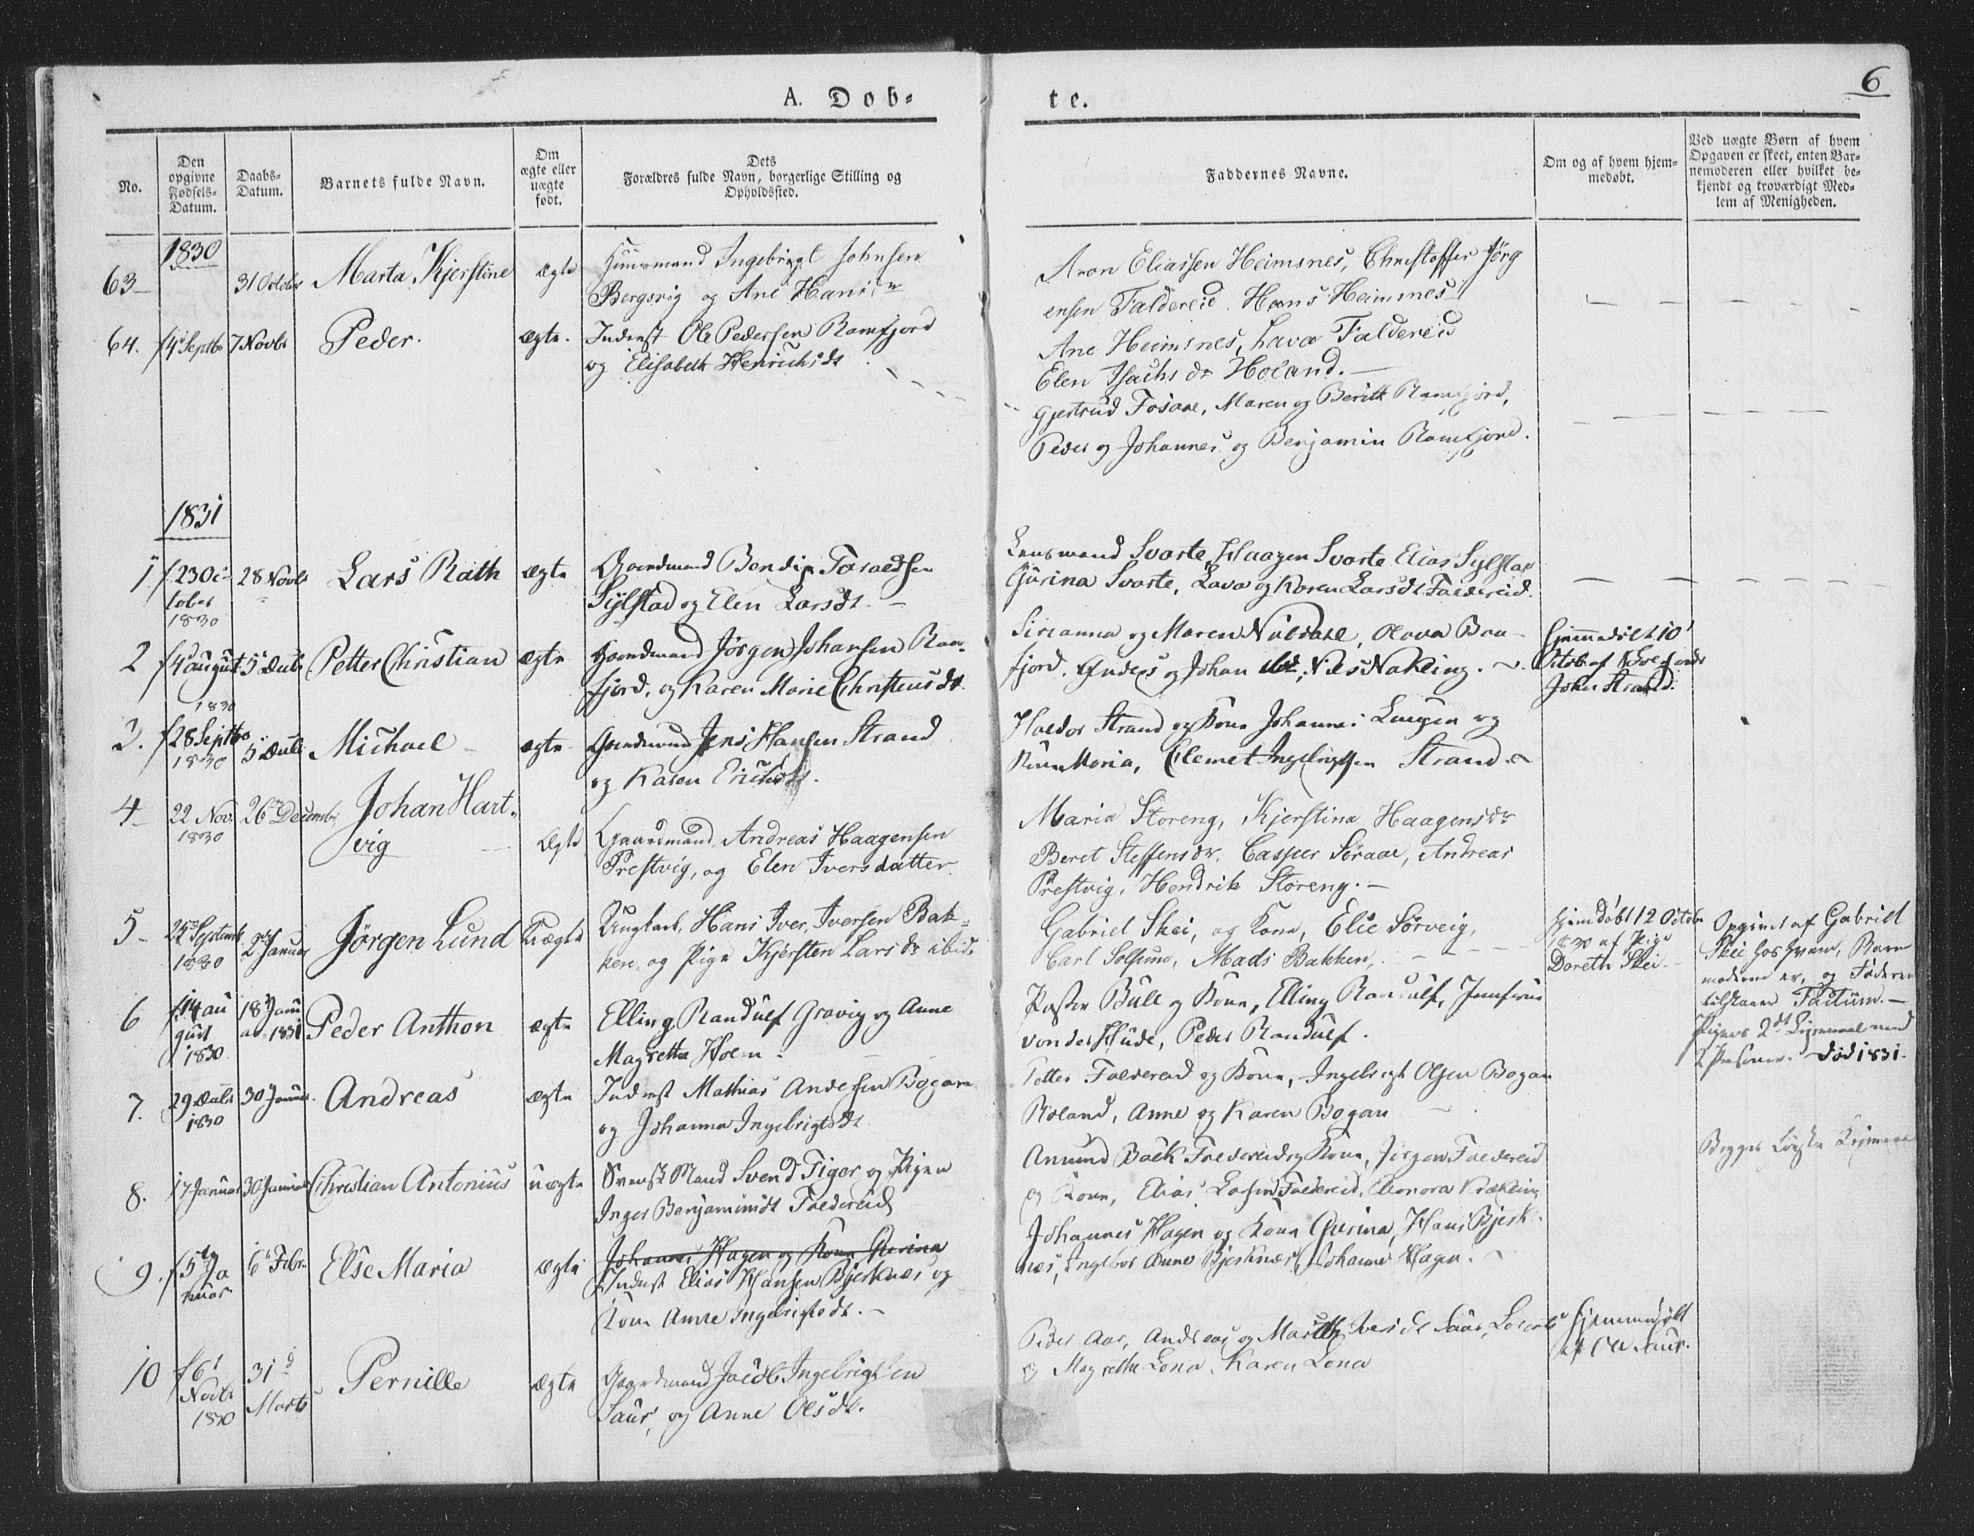 6
A. Døb-
te.
No.
Den
opgivne
Fødsels-
Datum.
Daabs-
Datum.
Barnets fulde Navn.
Om
ægte eller
uægte
født.
Dets
Forældres fulde Navn, borgerlige Stilling og
Opholdssted.
Faddernes Navne.
Om og af hvem hjem-
medøbt.
Ved uægte Børn af hvem
Opgaven er skeet, enten Bar-
nemoderen eller hvilket be-
kjendt og troværdigt Med-
lem af Menigheden.
1830
63
31 October
Marta Kjerstine
ægte
Huusmand Ingebrigt Johnsen
Bergsvig og Ane Hansdr
Aron Eliassen Heimsnes, Christoffer Jørg
ensen Faldereid. Hans Heimsnes
Ane Heimsnes, Lava Faldereid
Elen Isachsdr Høland.
64.
f 4 Septbr
7 Novbr
Peder.
ægte.
Inderst Ole Pedersen Ramfjord
og Elisabeth Henrichsdr
Gjertrud Fosaae, Maren og Berith Ramfjord,
Peder og Johannes og Benjamin Ramfjord.
1831
1
f 23 Oc-
tober
1830
28 Novbr
Lars Rath
ægte
Gaardmand Bendix Taraldsen
Sylstad og Elen Larsdr.
Lensmand Svarte, Haagen Svarte Elias Sylstad
Gurina Svarte, Lava og Karen Larsdr Faldereid.
2
f 4 august
1830
Petter Christian
ægte
Gaardmand Jørgen Johansen Ram-
fjord, og Karen Marie Christensdr
og Maren
fjord. Anders og Johan Nils Nakling.
Hjemmedøbt 10
Octob af
John Strand.
3.
f 28 Septbr
1830
Michael
ægte
Gaardmand Jens Hansen Strand
og Karen Ericksdr.
Haldor Strand og Kone Johannes og
Kone Maria, Clemet Ingebrigtsen Strand.
4
22 Nov.
1830
26 December
Johan Hart-
vig
Ægte
Gaardmand Andreas Haagensen
Prestvig, og Elen Iversdatter
Maria Storeng, Kjerstina Haagensdr
Beret Steffensdr. Casper Søraae, Andreas
Prestvig. Hendrik Storeng.
5
Septemb
1830
2 Januar
Jørgen Lund
Uægte
Ungkarl, Hans Iver Iversen Bak-
ken, og Pige Kjersten Larsdr ibid.
Gabriel Skei, og Kone, Elie Sørveig,
Carl Solsund, Mads Bakken,
Hjemdøbt 12 Octobr
1830 af Pige
Doreth Skei
Opgivet af Gabriel
Skei hos hvem, Barne
moderen er, og Faderen
tilstaaer Factum.
Pigens 2de Leiermaal med
2 Personer. død 1831.
6
f 14 au
gust
1830
18 Janu
ar 1831
Peder Anthon
ægte
Elling Randulf Gravig og Anne
Magrethe Holm
Pastor Bull og Kone, Elling Randulf, Jomfrue
von der Hude, Peder Randulf.
7.
1830
30 Januar.
Andreas
ægte
Inderst Mathias Andersen Bogan
og Johanna Ingebrigtsdr.
Petter Faldereid og Kone, Ingebrigt Olsen Bogan
Roland, Anne og Karen Bogan
8.
17 Januar
30 Januar
Christian Antonius
uægte
Svensk Mand Svend Tiger og Pigen
Inger Benjaminsdr Faldereid
Amund Bach Faldereid og Kone, Jørgen Faldereid
og Kone, Elias Larsen Faldereid, Eleonora Krækling
Begges første Leiermaal
9.
f 5 Ja
nuar
6 Febr.
Else Maria
ægte
Johannes Hagen og Kone Gurina
Inderst Elias Hansen Bjerknæs og
Kone Anne Ingebrigtsdr.
Johannes Hagen og Kone Gurina, Hans Bjerk-
næs, Ingebor Anne Bjerknæs, Johanne Hagen.
10
f 6
Novbr
1830
31
Marts
Pernille
ægte
Gaardmand Jacob Ingebrigtsen
Saur, og Anne Olsdr.
Peder Aar, Andreas og Iversdr Saur,
og Magrethe Lona, Karen Lona
Hjemmedøbt
af Ole Saur.